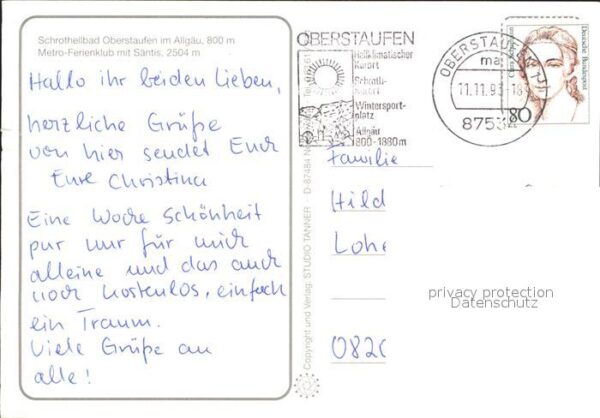 Schrothheilbad Oberstaufen im Allgäu, 800 m
Metro-Ferienklub mit Säntis, 2504 m
Hallo ihr beiden Lieben,
herzliche Grüße
von hier sendet Euch
Eure Christina
Eine Woche Schönheit
pur nur für mich
alleine und das auch
noch kostenlos, einfach
ein Traum.
Viele Grüße an
alle!
OBERSTAUFEN
Heilklimatischer
Kurort
Schroth-
kurort
Wintersport-
platz
Allgäu
800-1880m
OBERSTAUFEN
ma
11.11.93-18
87534
Deutsche Bundespost
80
Copyright und Verlag: STUDIO TANNER D-87484
Familie
Hild
Lohe
082
privacy protection
Datenschutz